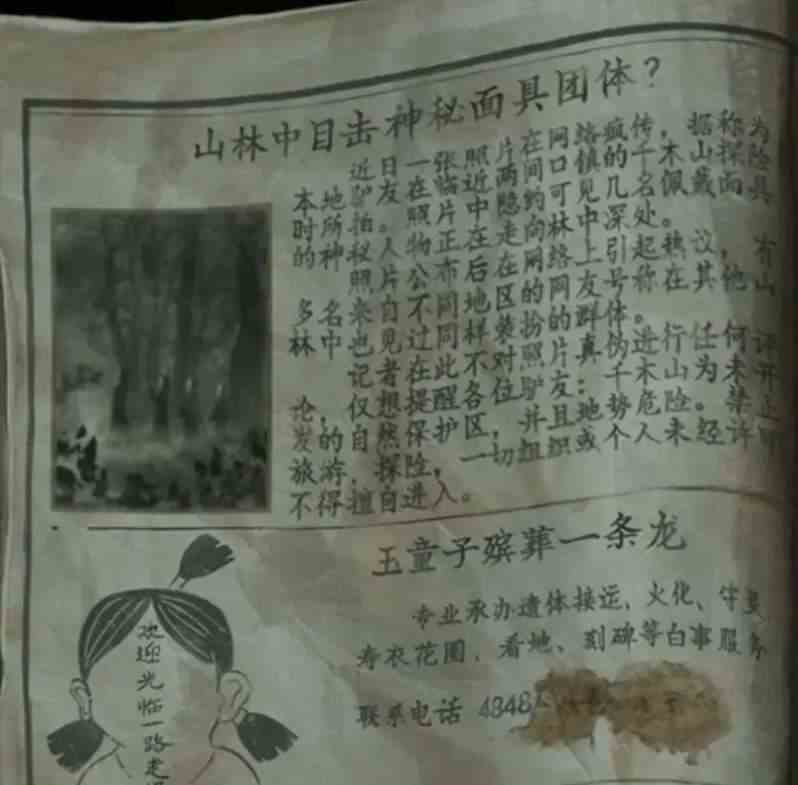 山林中目击神秘面具团体？
近日一张照片在网络疯传，据称为
本地驴友在临近两间口镇的千木山探险
时所拍。照片中隐约可见几名佩戴面具
的神秘人物正在走向林中深处。
照片公布后在网络上引起热议，有
多名来自不同地区的网友号称在其他山
林中也见过同样装扮的群体。
记者在此不对照片真伪进行任何评
论，仅想提醒各位驴友：千木山为未开
发的自然保护区，并且地势危险。禁止
旅游、探险，一切组织或个人未经许可
不得擅自进入。
玉童子殡葬一条龙
专业承办遗体接运、火化、守灵
寿衣花圈、看地、刻碑等白事服务
联系电话 4848
欢迎光临一路走